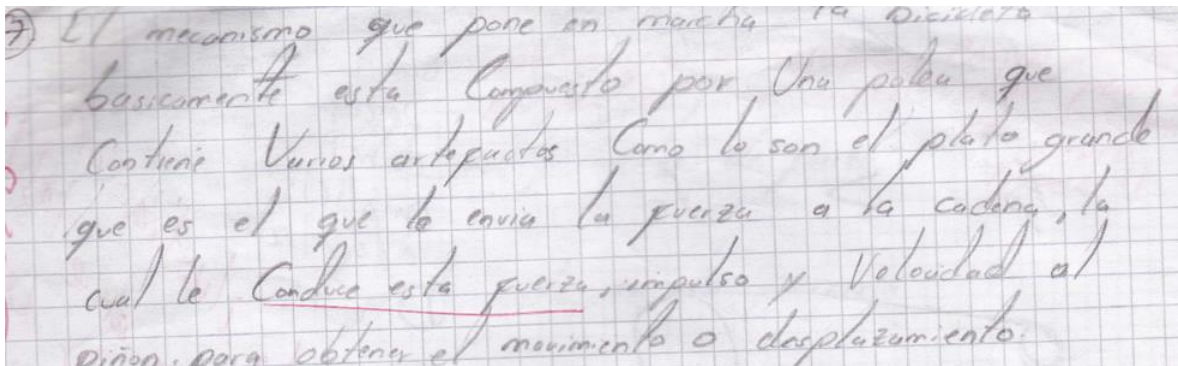 7) El mecanismo que pone en marcha la bicicleta
basicamente esta Compuesto por Una polea que
Contiene Varios artefactos Como lo son el plato grande
que es el que le envia la fuerza a la cadena, la
cual le Conduce esta fuerza, impulso y Velocidad al
piñon. para obtener el movimiento o desplazamiento.